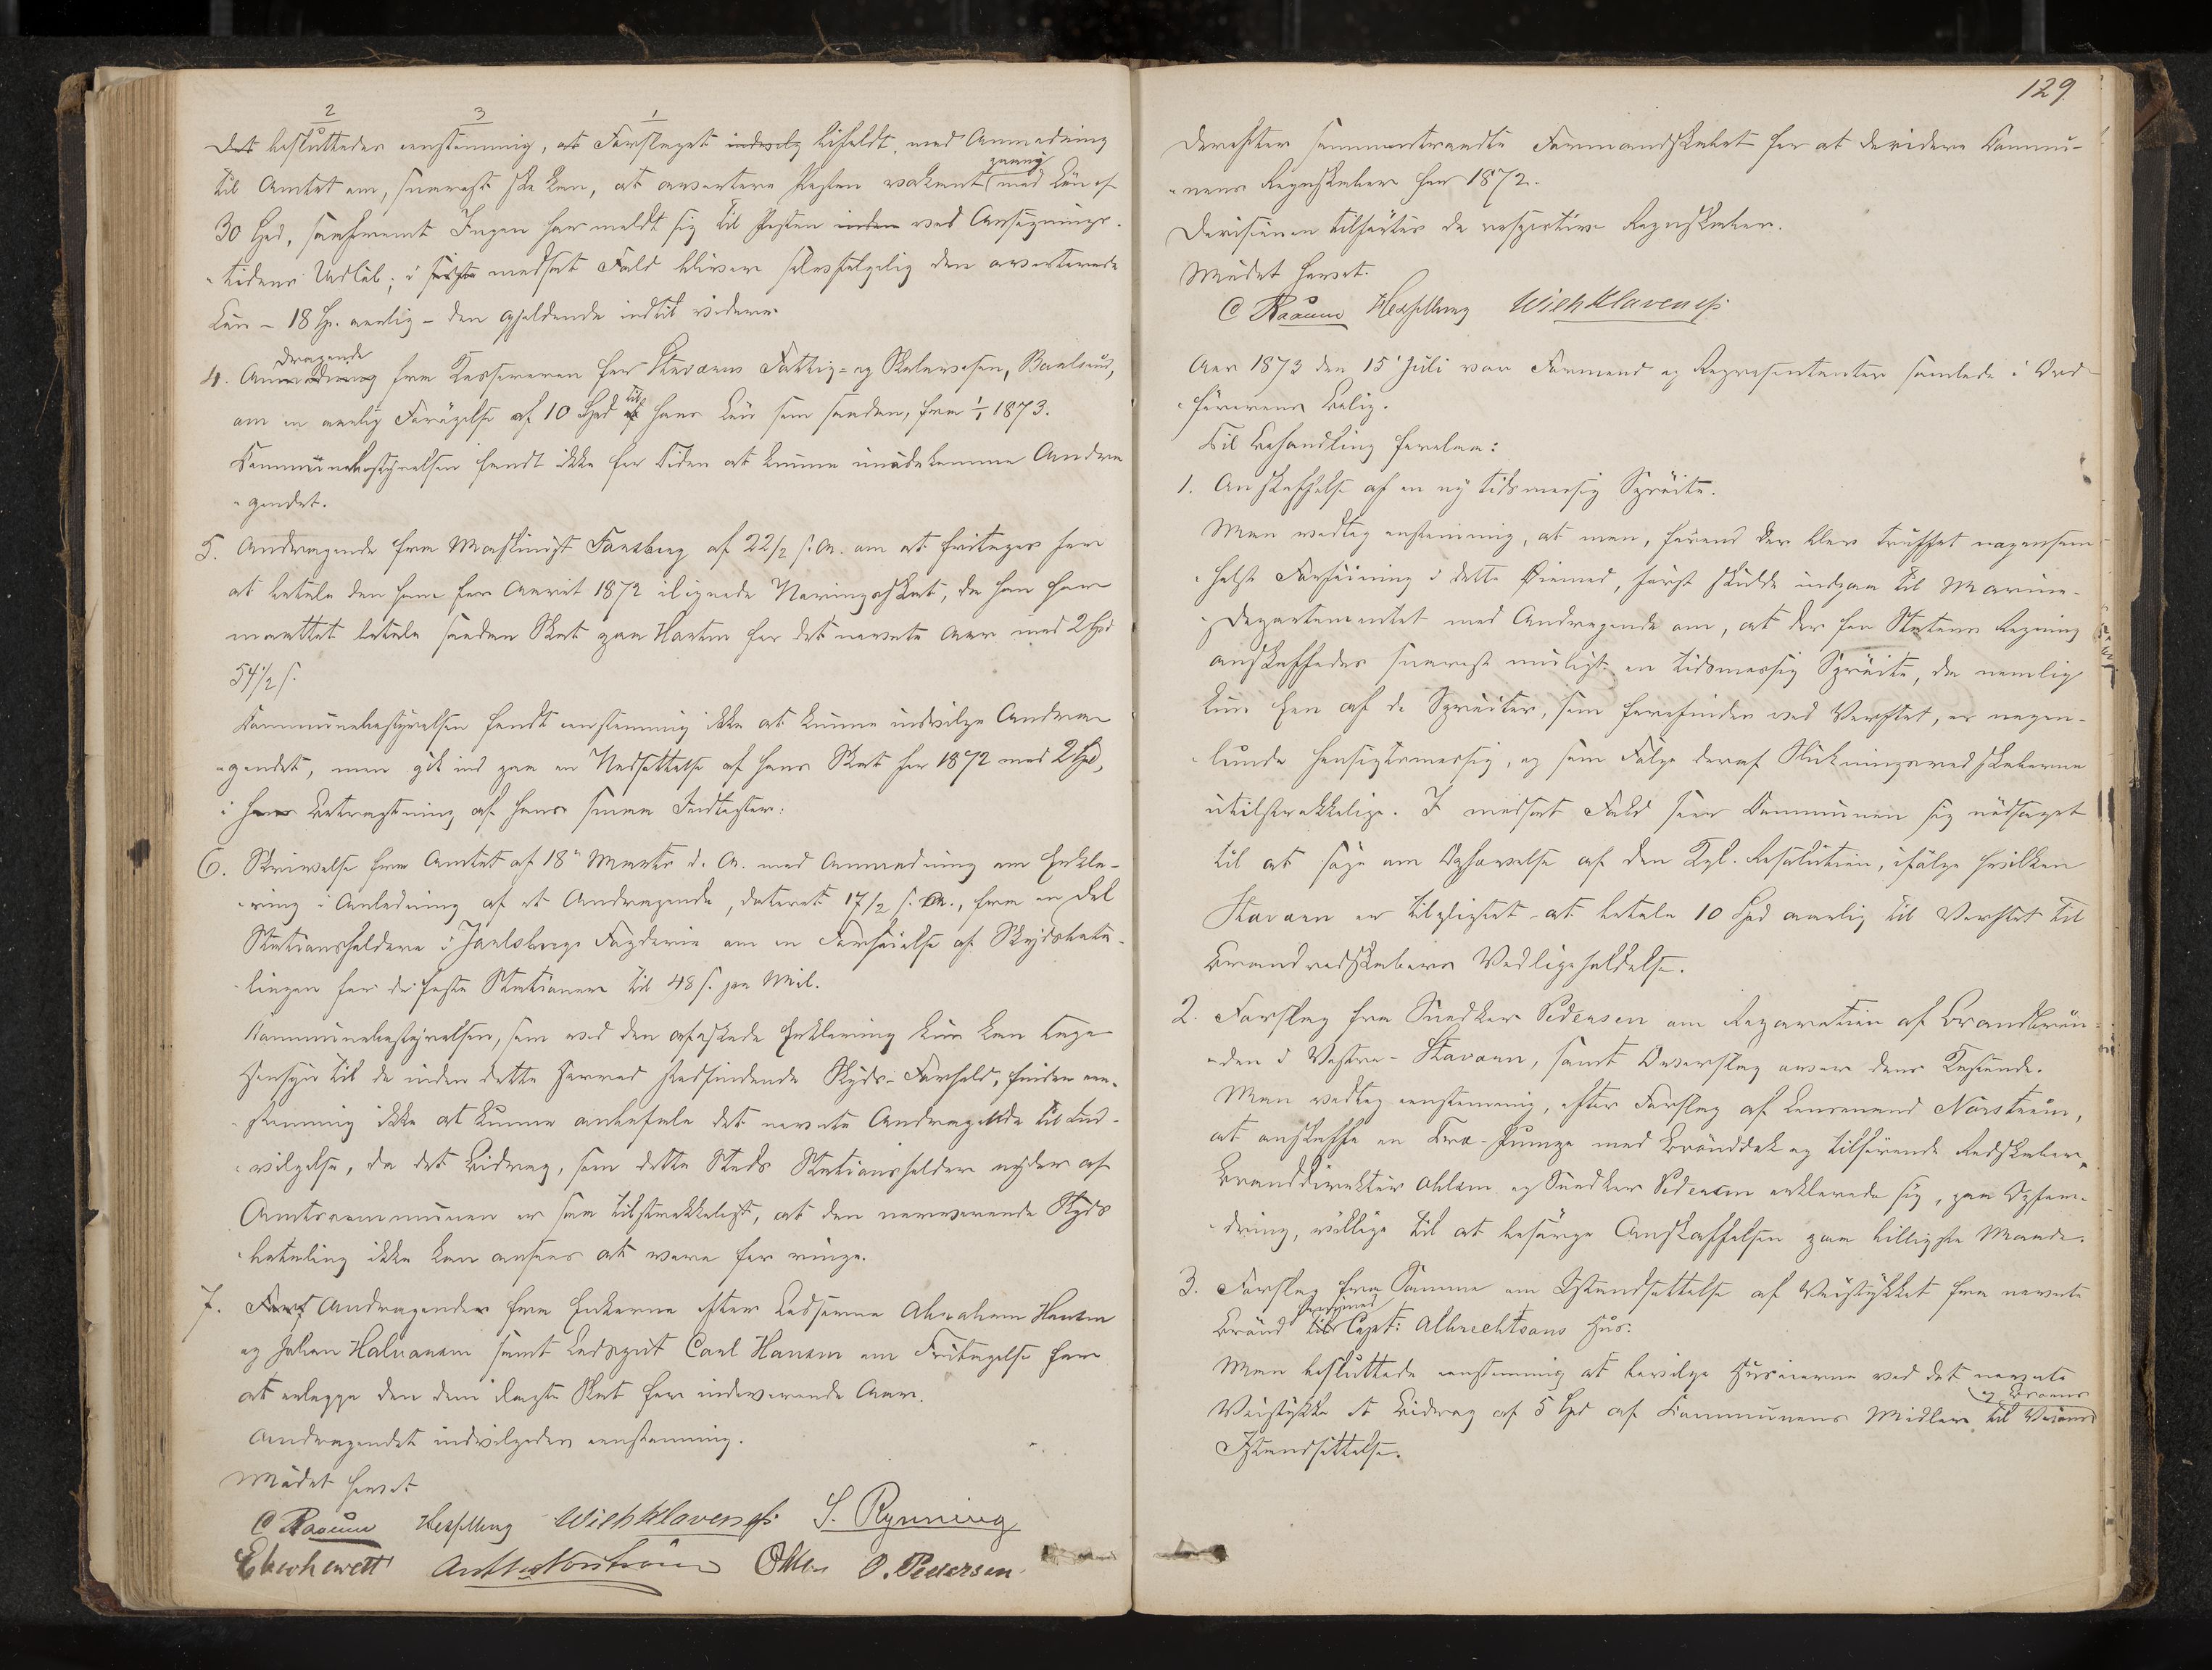 129.
2 3 1
Det besluttedes eenstemmig, at Forslaget indvilg bifaldt, med Anmodning
til Amtet om, snarest ske kan, at avertere Posten vakant med Løn af
30 Spd, saafremt Ingen har meldt sig til Posten inden ved Ansøgnings-
tidens Udløb; i modsat Fald bliver selvfølgelig den averterede
Løn - 18 Sp. aarlig - den gjeldende indtil videre.
dragende
4. An fra Kasserer for Staværns Fattig- og Skolevæsen,
til
om en aarlig Forøgelse af 10 Spd af hans Løn som saadan, fra 1/1 1873.
Kommunebestyrelsen fandt ikke for Tiden at kunne imødekomme Andra
gendet.
5. Andragende fra Maskinist Fansberg af 22/2 s. A. om at fritages for
at betale den ham for Aaret 1872 ilignede Næringsskat, da han har
maattet betale saadan Skat paa Horten for det nævnte Aar med 2 Spd
54 1/2 s.
Kommunebestyrelsen fandt eenstemmig ikke at kunne indvilge Andra
gendet, men gik ind paa en Nedsættelse af hans Skat for 1872 med 2 Spd,
i hans Betragtning af hans smaa Indtægter.
6. Skrivelse fra Amtet af 18de Marts d. A. med Anmodning om Erklæ-
ring i Anledning af et Andragende, dateret 17/2 s. M., fra en Del
Stationsholdere i Jarlsbergs Fogderie om en Forhøielse af Skydsbeta-
lingen for de faste Stationer til 48 s. pr. Mil.
Kommunebestyrelsen, som ved den afæskede Erklæring kun kan tage
Hensyn til de inden dette Herred stedfindende Skyds-Forhold, finder een-
stemmig ikke at kunne anbefale det nævnte Andragende til Ind-
vilgelse, da det Bidrag, som dette Steds Stationsholder nyder af
Amtscommunen er saa tilstrækkeligt, at den nærværende Skyds
betaling ikke kan ansees at være for ringe.
7. Andragender fra Enkerne efter Lodserne Abraham Hansen
og Johan Halvorsen samt Lodsgut Carl Hansen om Fritagelse for
at erlægge den dem ilagte Skat for indeværende Aar.
Andragendet indvilgedes eenstemmig.
Mødet hævet
C Raaum Wilh Klavenes S. Rynning
O. Pedersen
Derefter sammentraadte Formandskabet for at decidere Kommu-
nens Regnskaber for 1872.
Decisionen tilførtes de respective Regnskaber.
Mødet hævet.
C Raaum Wilh Klavenes
Aar 1873 den 15de Juli var Formænd og Repræsentanter samlede i Ord-
førerens Bolig.
Til Behandling forelaa:
1. Anskaffelse af en ny tidsmæssig Sprøite.
Man vedtog eenstemmig, at man, førend der blev truffet nogensom-
helst Forføining i dette Øiemed, først skulde indgaa til Marine-
Departementet med Andragende om, at der for Statens Regning
anskaffedes snarest muligt en tidsmæssig Sprøite, da nemlig
kun Een af de Sprøiter, som forefindes ved Verftet, er nogen-
lunde hensigtsmæssig, og som Følge deraf Slukningsredskaberne
utilstrækkelige. I modsat Fald seer Kommunen sig nødsaget
til at søge om Ophævelse af den Kgl. Resolution, ifølge hvilken
Staværn er tilpligtet at betale 10 Spd aarlig til Verftet til
Brandredskabers Vedligeholdelse.
2. Forslag fra Snedker Pedersen om Reparation af Brandbrøn
den i Vestre-Staværn, samt Overslag over dens Kostende.
Man vedtog eenstemmig, efter Forslag af Lensmand Norstrøm,
at anskaffe en Træ-Pumpe med Brønddæk og tilhørende Redskaber.
Branddirektør Ohlsen og Snedker Pedersen erklærede sig, paa Opfor-
dring, villige til at besørge Anskaffelsen paa billigste Maade.
3. Forslag fra Samme om Istandsættelse af Veistykket fra nævnte
Brønd til Capt: Albrechtsons Hus.
Man besluttede eenstemmig at bevilge Huseierne ved det nævnte
og Broens
Veistykke et Bidrag af 5 Spd af Kommunens Midler til Veiens
Istandsættelse.